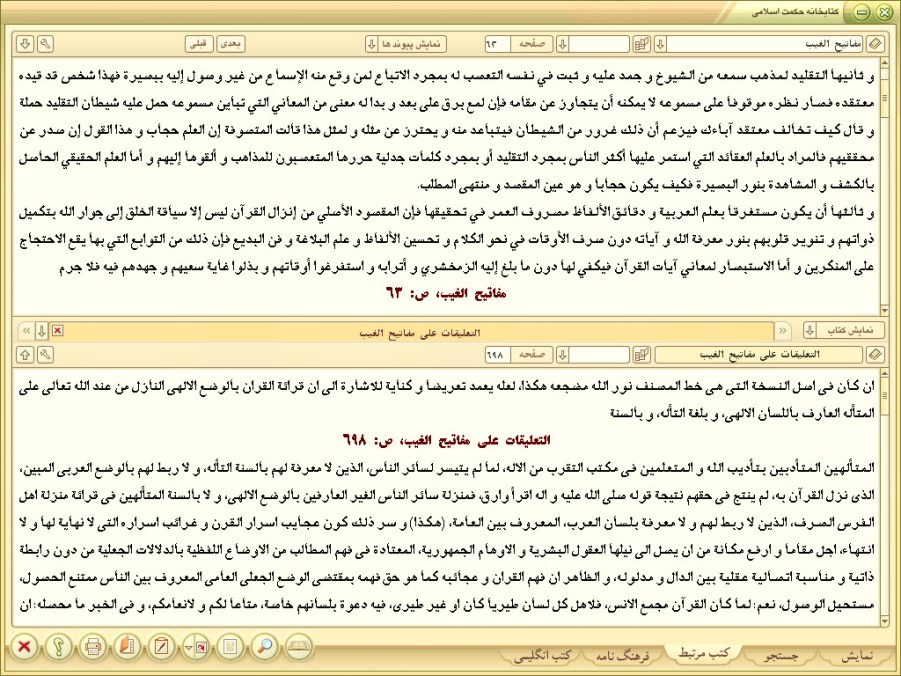 کتابخانه حکمت اسلامی
مفاتیح الغیب
صفحه
۶۳
نمایش پیوند ها
بعدی
قبلی
و ثانيها التقليد لمذهب سمعه من الشيوخ و جمد عليه و ثبت في نفسه التعصب له بمجرد الاتباع لمن وقع منه الإسماع من غير وصول إليه ببصيرة فهذا شخص قد قيده
معتقده فصار نظره موقوفا على مسموعه لا يمكنه أن يتجاوز عن مقامه فإن لمع برق على بعد و بدا له معنى من المعاني التي تباين مسموعه حمل عليه شيطان التقليد حملة
و قال كيف تخالف معتقد آباءك فيزعم أن ذلك غرور من الشيطان فيتباعد منه و يحترز عن مثله و لمثل هذا قالت المتصوفة إن العلم حجاب و هذا القول إن صدر عن
محققيهم فالمراد بالعلم العقائد التي استمر عليها أكثر الناس بمجرد التقليد أو بمجرد كلمات جدلية حررها المتعصبون للمذاهب و ألقوها إليهم و أما العلم الحقيقي الحاصل
بالكشف و المشاهدة بنور البصيرة فكيف يكون حجابا و هو عين المقصد و منتهى المطلب.
و ثالثها أن يكون مستغرقا بعلم العربية و دقائق الألفاظ مصروف العمر في تحقيقها فإن المقصود الأصلي من إنزال القرآن ليس إلا سياقة الخلق إلى جوار الله بتكميل
ذواتهم و تنوير قلوبهم بنور معرفة الله و آياته دون صرف الأوقات في نحو الكلام و تحسين الألفاظ و علم البلاغة و فن البديع فإن ذلك من التوابع التي بها يقع الاحتجاج
على المنكرين و أما الاستبصار لمعاني آيات القرآن فيكفي لها دون ما بلغ إليه الزمخشري و أترابه و استفرغوا أوقاتهم و بذلوا غاية سعيهم و جهدهم فيه فلا جرم
مفاتيح الغيب، ص: ۶۳
نمایش کتاب
التعلیقات علی مفاتیح الغیب
التعلیقات علی مفاتیح الغیب
صفحه
۶۹۸
ان كان فى اصل النسخة التى هى خط المصنف نور الله مضجعه هكذا، لعله يعمد تعريضا و كناية للاشارة الى ان قرائة القران بالوضع الالهى النازل من عند الله تعالى على
المتأله العارف باللسان الالهى، و بلغة التأله، و بألسنة
التعليقات على مفاتيح الغيب، ص: ۶۹۸
المتألهين المتأدبين بتأديب الله و المتعلمين فى مكتب التقرب من الاله، لما لم يتيسر لسائر الناس، الذين لا معرفة لهم بألسنة التأله، و لا ربط لهم بالوضع العربى المبين،
الذى نزل القرآن به، لم ينتج فى حقهم نتيجة قوله صلى الله عليه و اله اقرأ وارق، فمنزلة سائر الناس الغير العارفين بالوضع الالهى، و لا بألسنة المتألهين فى قرائة منزلة اهل
الفرس الصرف، الذين لا ربط لهم و لا معرفة بلسان العرب، المعروف بين العامة، (هكذا) و سر ذلك كون عجايب اسرار القرن و غرائب اسراره التى لا نهاية لها و لا
انتهاء، اجل مقاما و ارفع مكانة من ان يصل الى نيلها العقول البشرية و الاوهام الجمهورية، المعتادة فى فهم المطالب من الاوضاع اللفظية بالدلالات الجعلية من دون رابطة
ذاتية و مناسبة اتصالية عقلية بين الدال و مدلوله، و الظاهر ان فهم القران و عجائبه كما هو حق فهمه بمقتضى الوضع الجعلى العامى المعروف بين الناس ممتنع الحصول،
مستحيل الوصول، نعم: لما كان القرآن مجمع الانس، فلاهل كل لسان طيريا كان او غير طيرى، فيه دعوة بلسانهم خاصة، متاعا لكم و لانعامكم، و فى الخبر ما محصله: ان
نمایش
جستجو
کتب مرتبط
فرهنگ نامه
کتب انگلیسی